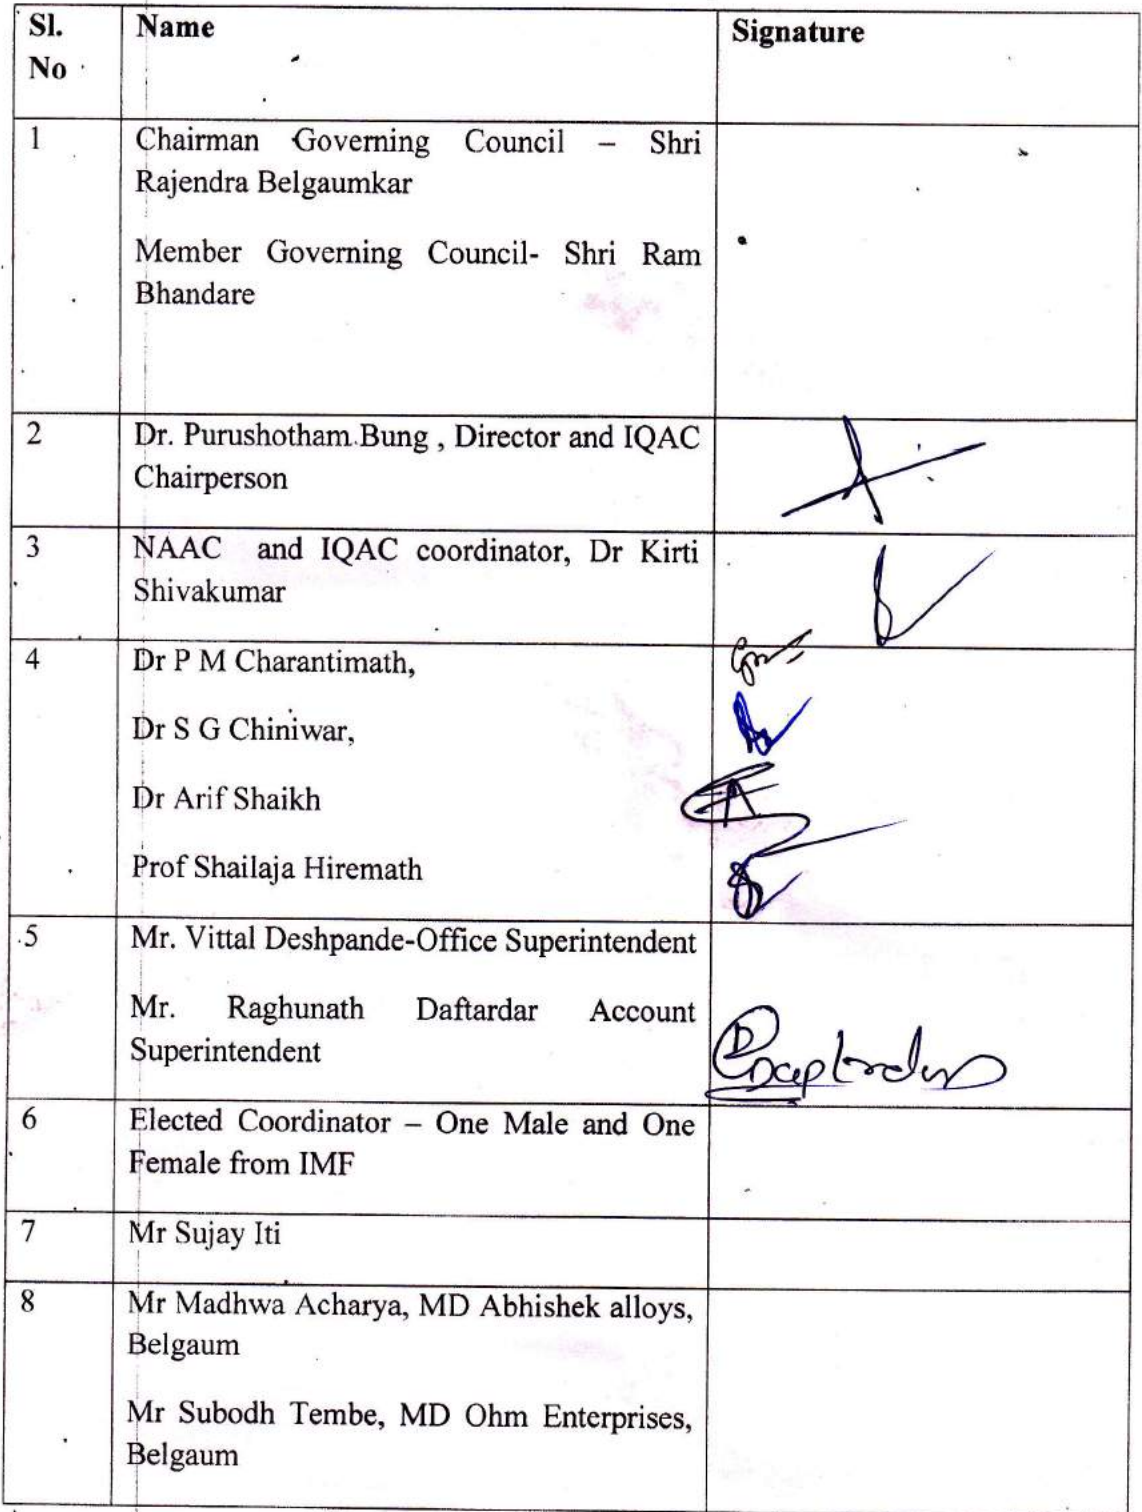 Sl. No Name Signature
1 Chairman Governing Council – Shri
Rajendra Belgaumkar
Member Governing Council- Shri Ram
Bhandare
2 Dr. Purushotham Bung , Director and IQAC
Chairperson
3 NAAC and IQAC coordinator, Dr Kirti
Shivakumar
4 Dr P M Charantimath,
Dr S G Chiniwar,
Dr Arif Shaikh
Prof Shailaja Hiremath
5 Mr. Vittal Deshpande-Office Superintendent
Mr. Raghunath Daftardar Account
Superintendent
6 Elected Coordinator – One Male and One
Female from IMF
7 Mr Sujay Iti
8 Mr Madhwa Acharya, MD Abhishek alloys,
Belgaum
Mr Subodh Tembe, MD Ohm Enterprises,
Belgaum